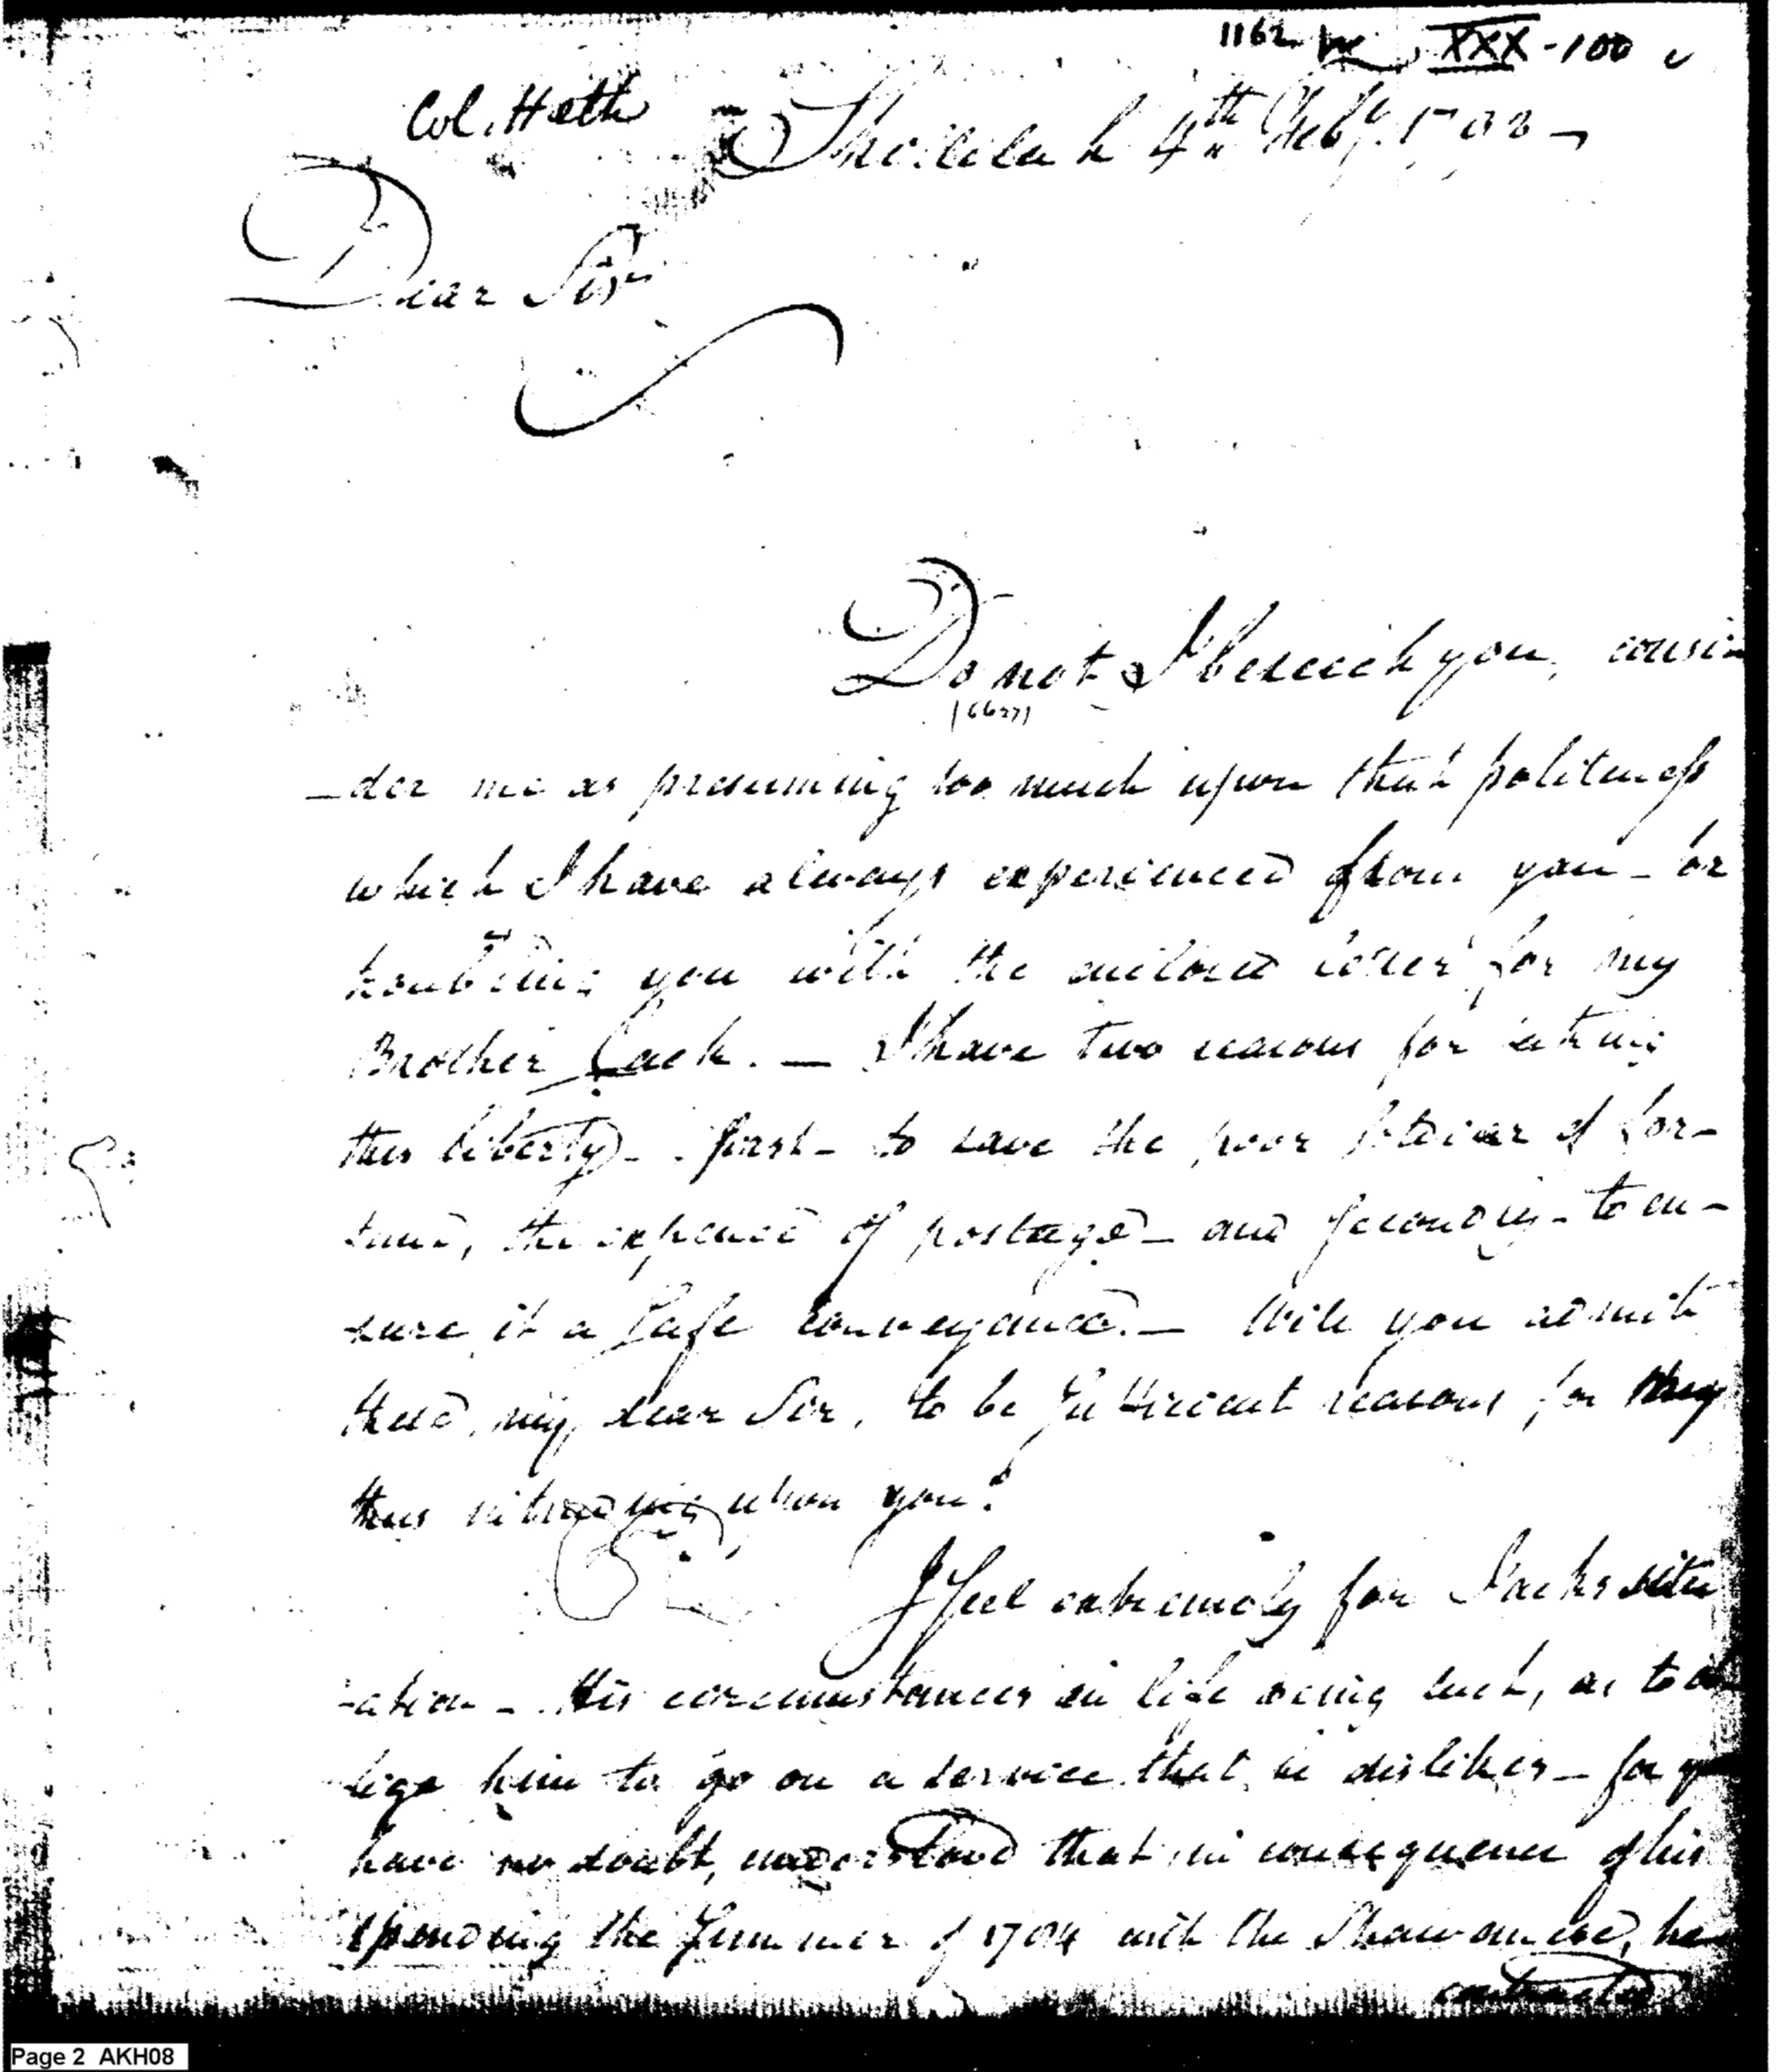 1162 XXX-100
Col. Heth
Shillelah 4th Feby. 1793 –
Dear Sir
Do not I beseech you, consi-
(6627)
-der me as presuming too much upon that politeness
which I have always experienced from you – or
troubling you with the enclosed letter for my
Brother Jack. – I have two reasons for taking
this liberty – first – to save the poor soldier of for-
tune, the expence of postage – and secondly – to en-
sure it a safe conveyance. – Will you admit
these, my dear Sir, to be sufficient reasons for my
thus intruding upon you?
I feel extremely for Jacks situ
-ation – His circumstances in life being such, as to ob
lige him to go on a service that he dislikes – for you
have no doubt, understood that in consequence of his
spending the summer of 1774 with the Shawanese, he
contracted
Page 2 AKH08